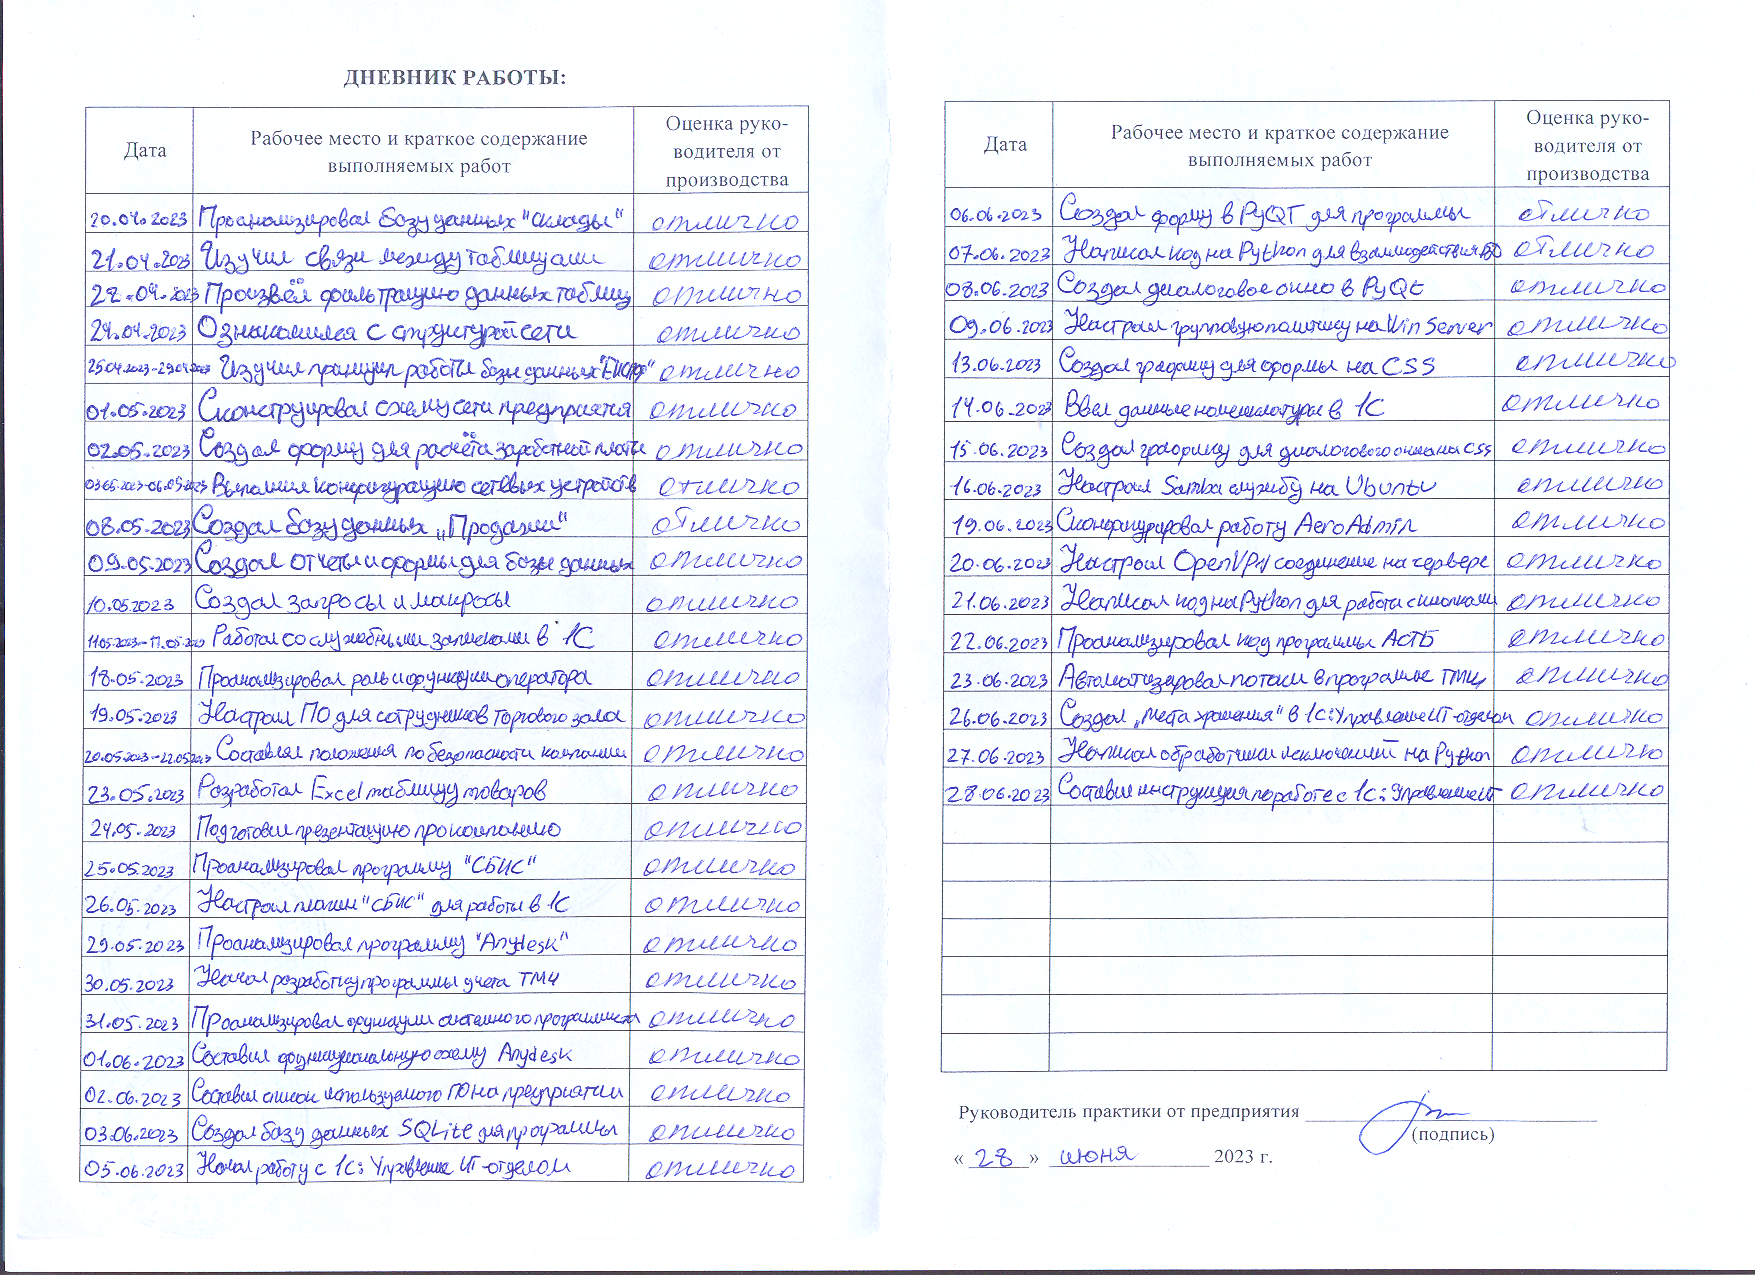 ДНЕВНИК РАБОТЫ:
Дата
Рабочее место и краткое содержание
выполняемых работ
Оценка руко-
водителя от
производства
20.04.2023 Проанализировал базу данных "склады" отлично
21.04.2023 Изучил связи между таблицами отлично
22.04.2023 Произвёл фильтрацию данных таблиц отлично
24.04.2023 Ознакомился с структурой сети отлично
25.04.2023-29.04.2023 Изучил принцип работы базы данных отлично
01.05.2023 Сконструировал схему сети предприятия отлично
02.05.2023 Создал форму для расчёта заработной платы отлично
03.05.2023-06.05.2023 Выполнил конфигурацию сетевых устройств отлично
08.05.2023 Создал базу данных „Продажи" отлично
09.05.2023 Создал отчеты и формы для базы данных отлично
10.05.2023 Создал запросы и макросы отлично
11.05.2023-17.05.2023 Работал со служебными записками в 1С отлично
18.05.2023 Проанализировал роль и функции оператора отлично
19.05.2023 Настроил ПО для сотрудников торгового зала отлично
20.05.2023-22.05.2023 Составлял положения по безопасности компании отлично
23.05.2023 Разработал Excel таблицу товаров отлично
24.05.2023 Подготовил презентацию про компанию отлично
25.05.2023 Проанализировал программу "СБИС" отлично
26.05.2023 Настроил плагин "СБИС" для работы в 1С отлично
29.05.2023 Проанализировал программу "Anydesk" отлично
30.05.2023 Начал разработку программы учета ТМЦ отлично
31.05.2023 Проанализировал функции системного программиста отлично
01.06.2023 Составил функциональную схему Anydesk отлично
02.06.2023 Составил список используемого ПО на предприятии отлично
03.06.2023 Создал базу данных SQLite для программы отлично
05.06.2023 Начал работу с 1С: Управление ИТ-отделом отлично
Дата
Рабочее место и краткое содержание
выполняемых работ
Оценка руко-
водителя от
производства
06.06.2023 Создал форму в PyQT для программы отлично
07.06.2023 Написал код на Python для взаимодействия БД отлично
08.06.2023 Создал диалоговое окно в PyQt отлично
09.06.2023 Настроил групповую политику на Win Server отлично
13.06.2023 Создал графику для формы на CSS отлично
14.06.2023 Ввел данные номенклатуры в 1С отлично
15.06.2023 Создал графику для диалогового окна на CSS отлично
16.06.2023 Настроил Samba службу на Ubuntu отлично
19.06.2023 Сконфигурировал работу AeroAdmin отлично
20.06.2023 Настроил OpenVPN соединение на сервере отлично
21.06.2023 Написал код на Python для работы с кнопками отлично
22.06.2023 Проанализировал код программы АСТБ отлично
23.06.2023 Автоматизировал потоки в программе ТМЦ отлично
26.06.2023 Создал „места хранения" в 1С: Управление ИТ-отделом отлично
27.06.2023 Написал обработчики исключений на Python отлично
28.06.2023 Составил инструкция по работе с 1С: Управление ИТ отлично
Руководитель практики от предприятия
(подпись)
« 28 » июня 2023 г.